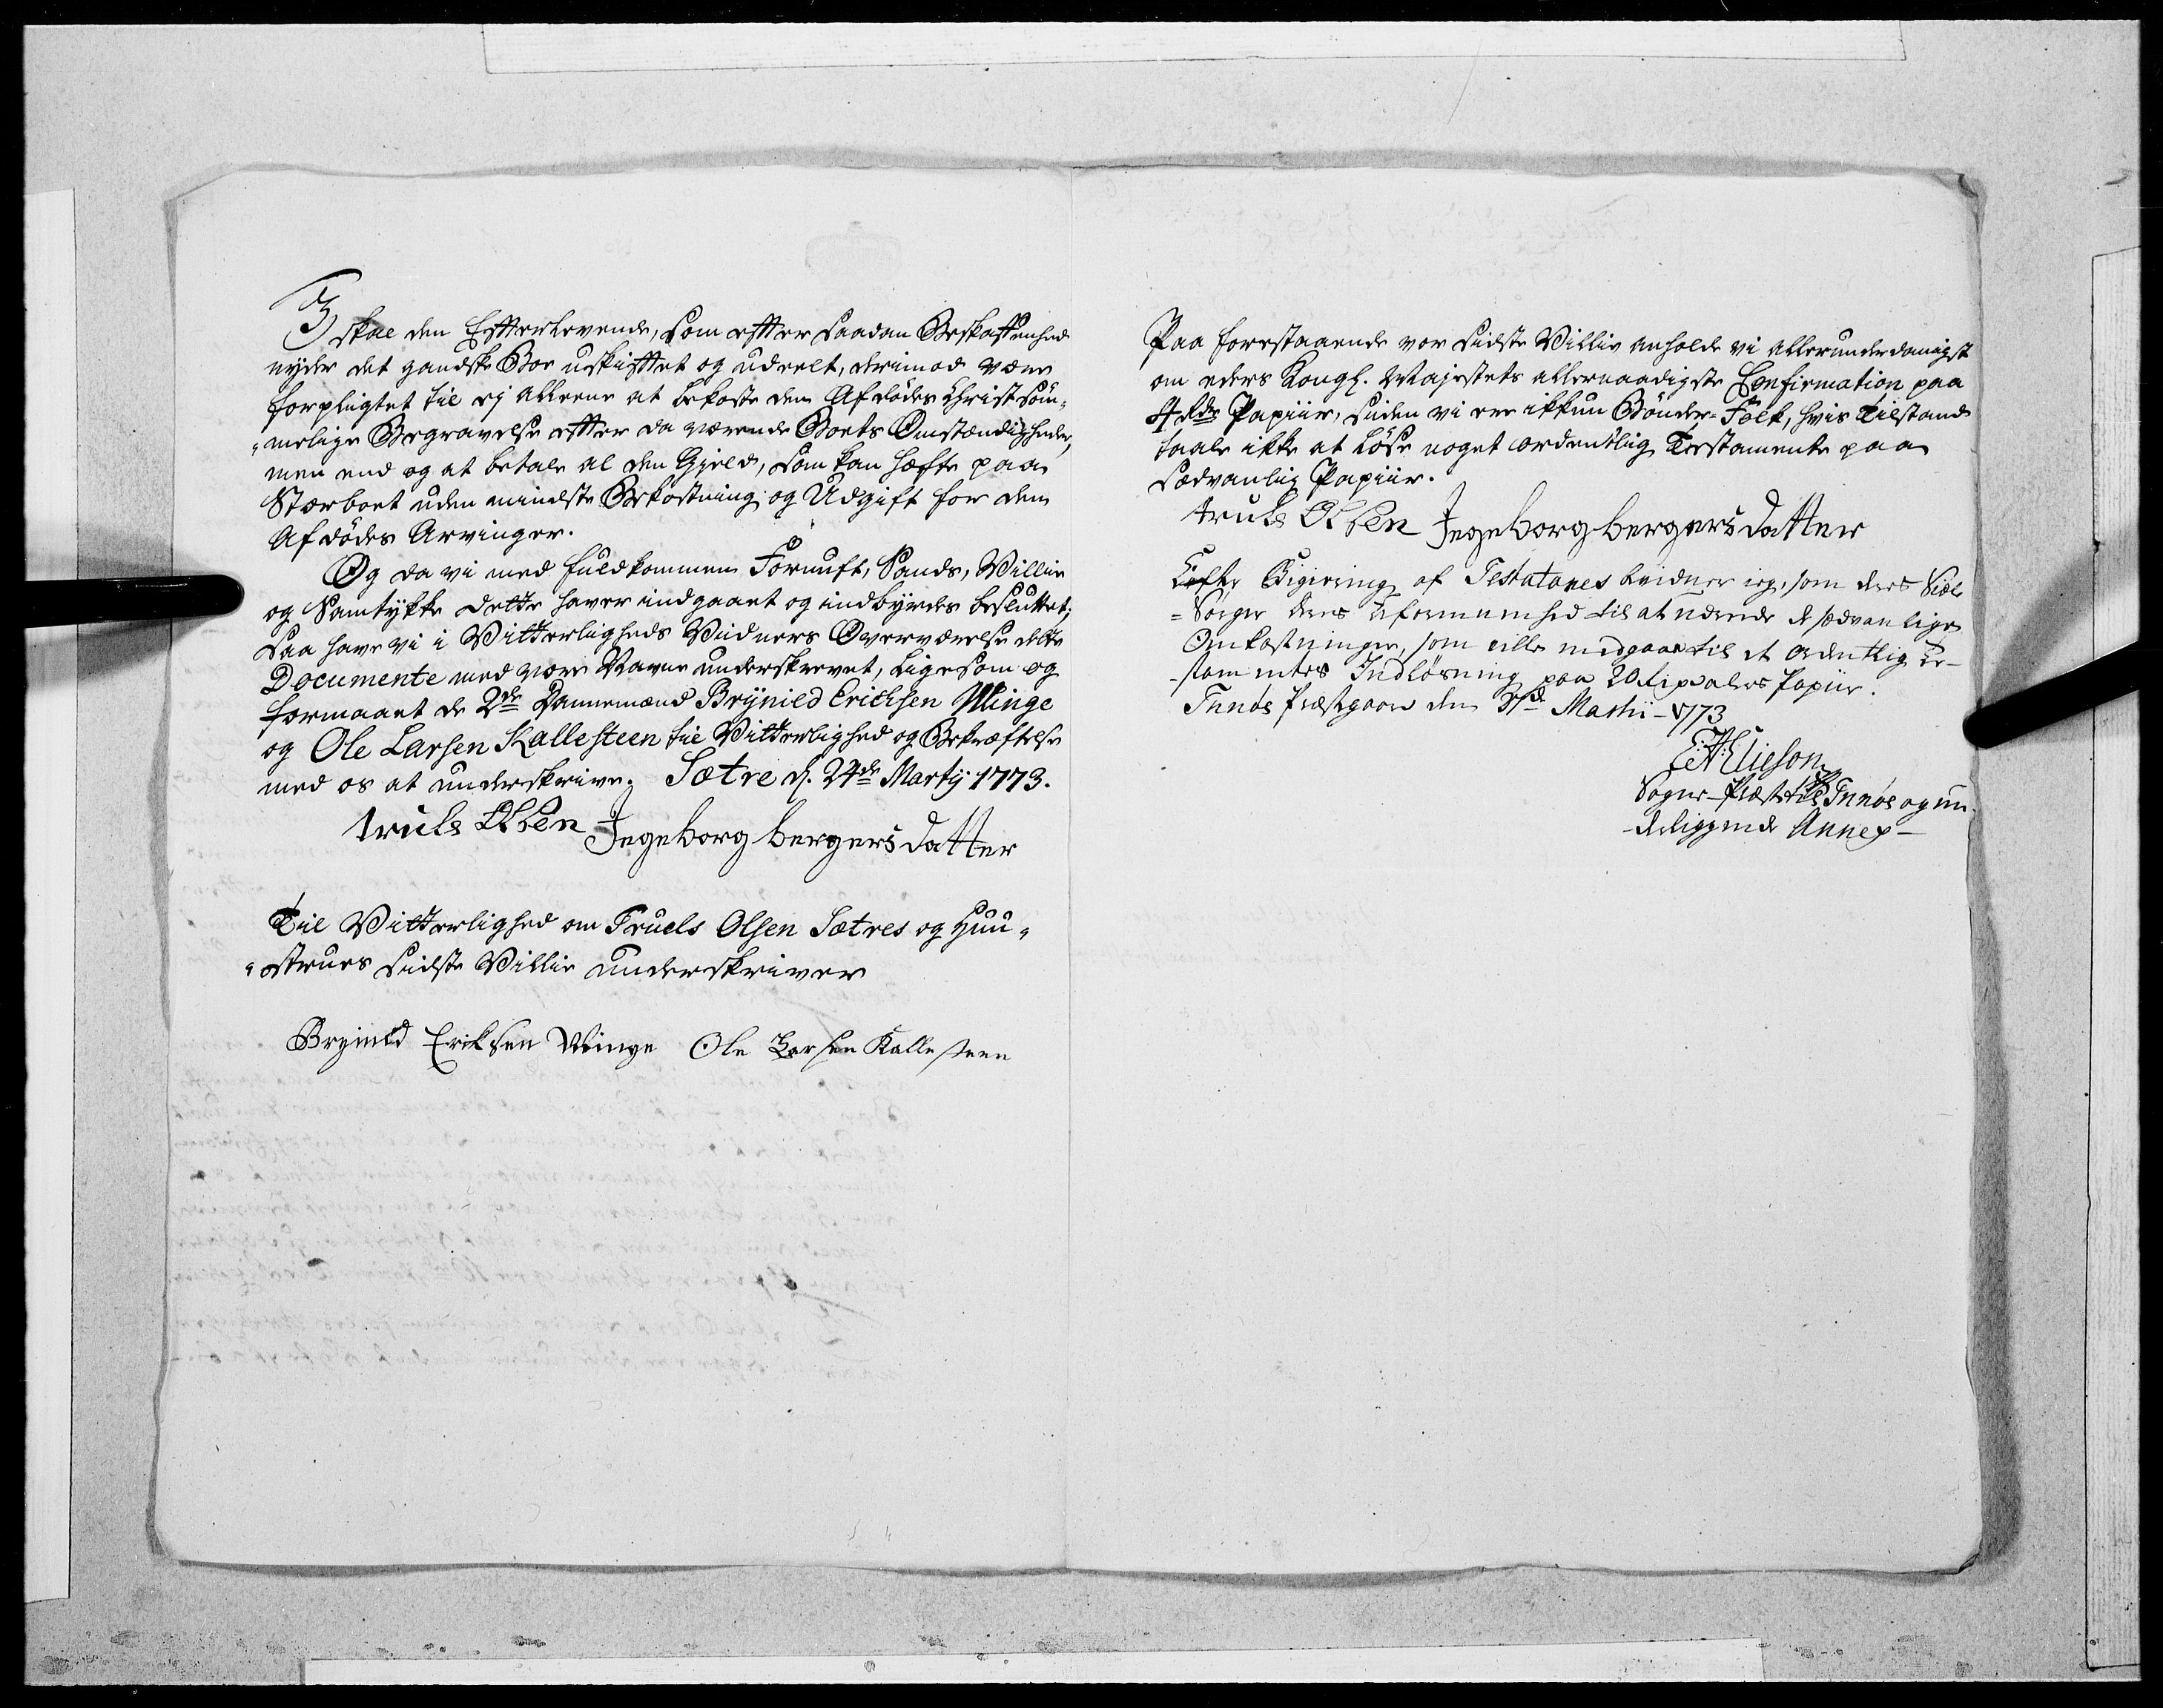 3) skal den Effterlevende, som effter saadan Beskaffenhed
nyder det gandske Boe uskifftet og udeelt, derimod være
forplngtet til ej alleene at bekoste den Afdödes Christ söm„
„melige Begravelse effter da værende Boets Omstændigheder,
men end og at betale al den Gjeld, som kan hæfte paa
Stærboet uden mindste Bekostning og Udgift for den
Afdödes Arvinger.
Og da vi med fuldkommen Fornuft, Sands, Villie
og Samtykke dette haver indgaaet og indbyrdes besluttet;
Saa have vi i Vitterligheds Vidners Overværelse dette
Documente med vore Navne underskrevet, ligesom og
formaaet de 2de Dannemænd Brÿnild Erichsen Winge
og Ole Larsen Kallesteen til Vitterlighed og Bekræftelse
med os at underskrive. Sætre d. 24de Martÿ 1773.
truls Olsen Ingeborg bergersdatter
Til Vitterlighed om Truels Olsen Sætres og Huu„
„struers sidste Villie underskriver
Brynild Eriksen Winge Ole Larsen Kallesteen
Paa forestaaende vor sidste Villie anholde vi allerunderdanigst
om eders Kongl. Majestets allernaadigste Confirmation paa
4 Rdr Papiir, siden vi ere ikkun Bönder-Folk, hvis Tilstand
taale ikke at löse noget ordentlig Testamente paa
sædvanlig Papiir.
truls Olsen Ingeborg bergersdatter
Efter Begiering af Testatores vidner ieg, som deres Siæle
=Sörger deres Uformuenhed til at udrede de sædvanlige
Omkostninger, som ville medgaae til et ordentlig Te-
-stamentes Indlösning paa 20 Rixdalers Papiir.
Tnnøs Præstgaard den 31d Martii 1773
Elieson
Sogne-Præst til Innøe og un-
-deliggende Annex-